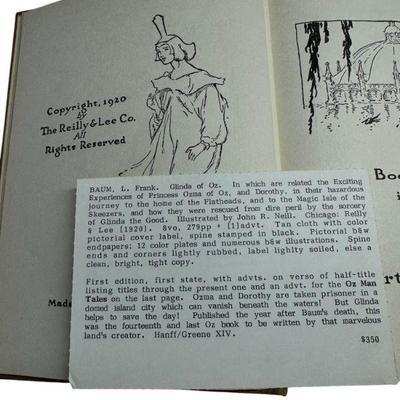 Copyright, 1920
By
The Reilly & Lee Co.
All
Rights Reserved
BAUM, L. Frank. Glinda of Oz. In which are related the Exciting
Experiences of Princess Ozma of Oz, and Dorothy, in their hazardous
journey to the home of the Flatheads, and to the Magic Isle of the
Skeezers, and how they were rescued from dire peril by the sorcery
of Glinda the Good. Illustrated by John R. Neill. Chicago: Reilly
& Lee [1920]. 8vo, 279pp + [1]advt. Tan cloth with color
pictorial cover label, spine stamped in black. Pictorial b&w
endpapers; 12 color plates and numerous b&w illustrations. Spine
ends and corners lightly rubbed, label lightly soiled, else a
clean, bright, tight copy.
First edition, first state, with advts. on verso of half-title
listing titles through the present one and an advt. for the Oz Man
Tales on the last page. Ozma and Dorothy are taken prisoner in a
domed island city which can vanish beneath the waters! But Glinda
helps to save the day! Published the year after Baum's death, this
was the fourteenth and last Oz book to be written by that marvelous
land's creator. Hanff/Greene XIV.
$350
Made
Boo
i
rt